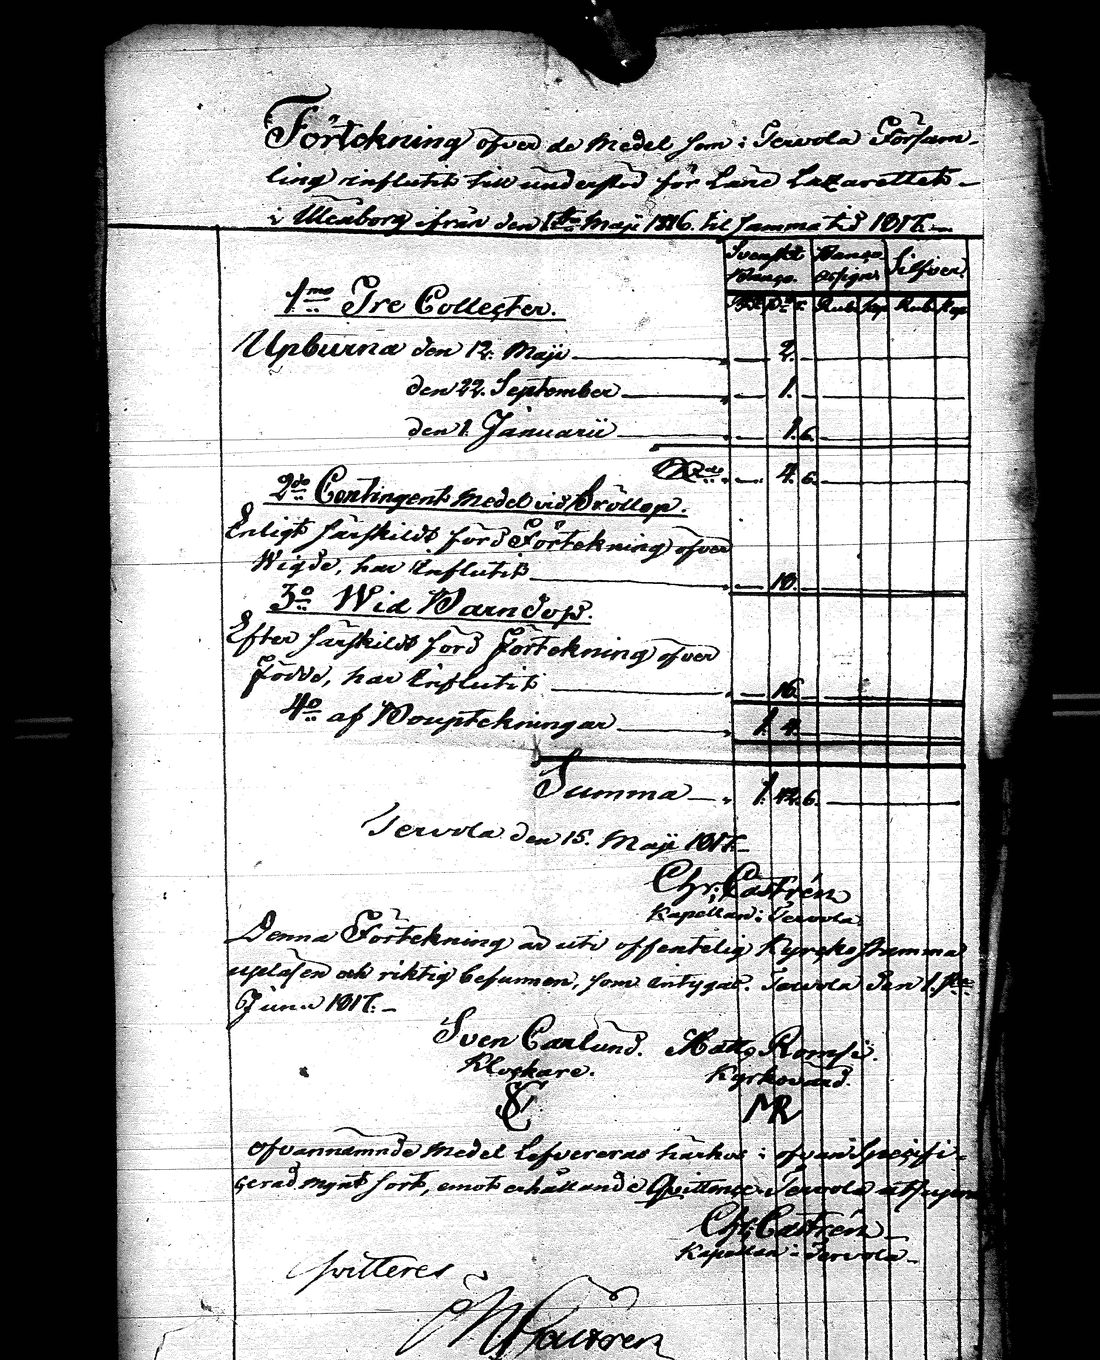 Förtekning öfver de Medel som i Tervola Försam-
ling influtit till understöd för Läns Lazarettet
i Uleåborg ifrån den 1sta Maji 1816. til samma tid 1817.
Svenskt Banco. Banco Assign. Silfver.
Rub. Kop. Rub. Kop.
1mo Tre Collecter.
Upburna den 12. Maji 2.
den 22. September 1.
den 1. Januarii 1.6.
4.6.
2do Contingent Medel vid Bröllop.
Enligt särskildt förd Förtekning öfver
Wigde, har influtit 18.
3o Wid Barndop.
Efter särskildt förd Förtekning öfver
Födde, har influtit 16.
4o af Bouptekningar 1. 4.
Summa 1. 42.6.
Tervola den 15. Maji 1817.
Chr: Castrén
Kapellan i Tervola
Denna Förtekning är uti offentelig Kyrckostämma
upläsen och riktig befunnen, som intygas. Tervola den 1.sta
Junii 1817.
Sven Carlund. Matts Romsi.
Klockare. Kyrkovärd.
SC MR
Ofvannämnde Medel lefvereras härhos i ofvan Specifi-
cerad mynt sort, emot erhållande Qvittence. Tervola ut supra
Chr: Castrén
Kapellan i Tervola
Qvitteres